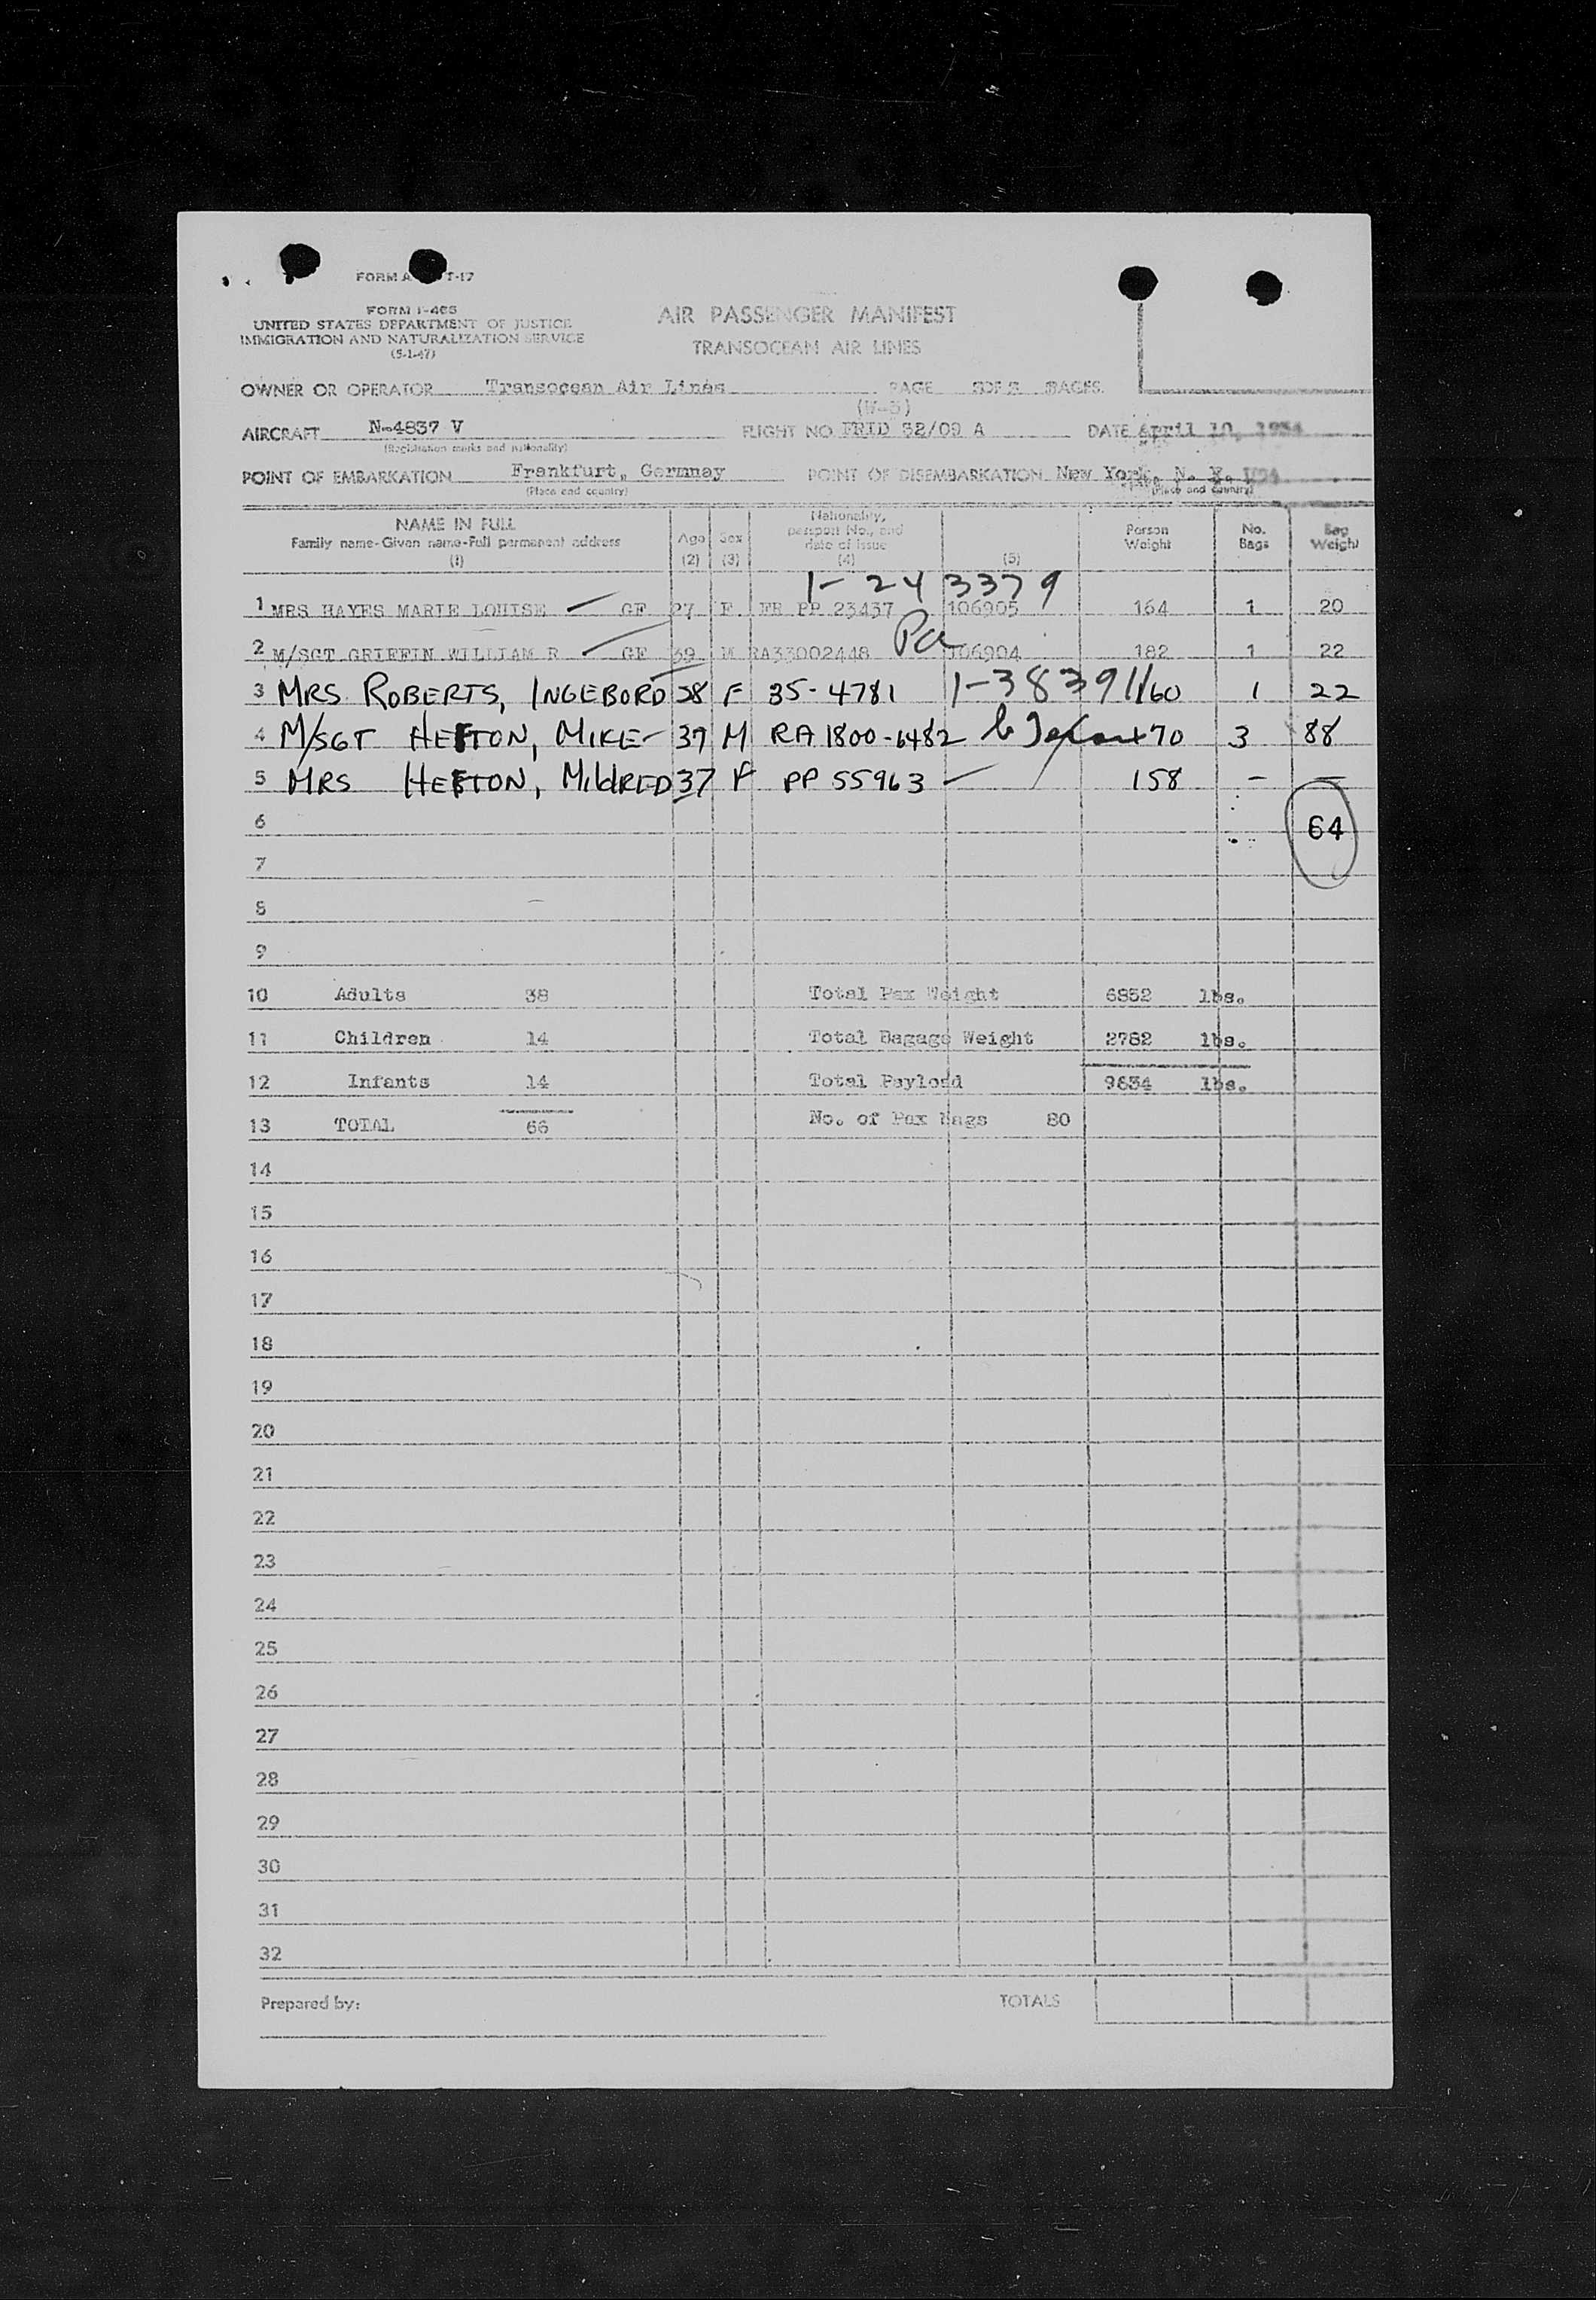 FORM I-466
UNITED STATES DEPARTMENT OF JUSTICE
IMMIGRATION AND NATURALIZATION SERVICE
(5-1-47)
AIR PASSENGER MANIFEST
TRANSOCEAN AIR LINES
OWNER OR OPERATOR Transocean Air Lines PAGE PAGES
AIRCRAFT N-4837 V FLIGHT NO FRID 52/09 A DATE April 10, 1954
(Registration marks and nationality)
POINT OF EMBARKATION Frankfurt, Germnay POINT OF DISEMBARKATION New York, N. Y. USA
(Place and country) (Place and country)
NAME IN FULL Family name-Given name-Full permanent address (1) Age (2) Sex (3) Nationality, passport No., and date of issue (4) (5) Person Weight No. Bags Bag Weight
1-243379
1 MRS HAYES MARIE LOUISE GF 27 F FR PP 23437 106905 164 1 20
2 M/SGT GRIFFIN WILLIAM R GF 39 M RA33002448 Pa 106904 182 1 22
3 MRS ROBERTS, INGEBORD 28 F 35-4781 1-383911 160 1 22
4 M/SGT HEFTON, MIKE 37 M RA 1800-6482 170 3 88
5 MRS HEFTON, MILDRED 37 F PP 55963 158 - -
6 64
7
8
9
10 Adults 38 Total Pax Weight 6852 lbs.
11 Children 14 Total Bagage Weight 2782 lbs.
12 Infants 14 Total Payload 9634 lbs.
13 TOTAL 66 No. of Pax Bags 80
14
15
16
17
18
19
20
21
22
23
24
25
26
27
28
29
30
31
32
Prepared by: TOTALS